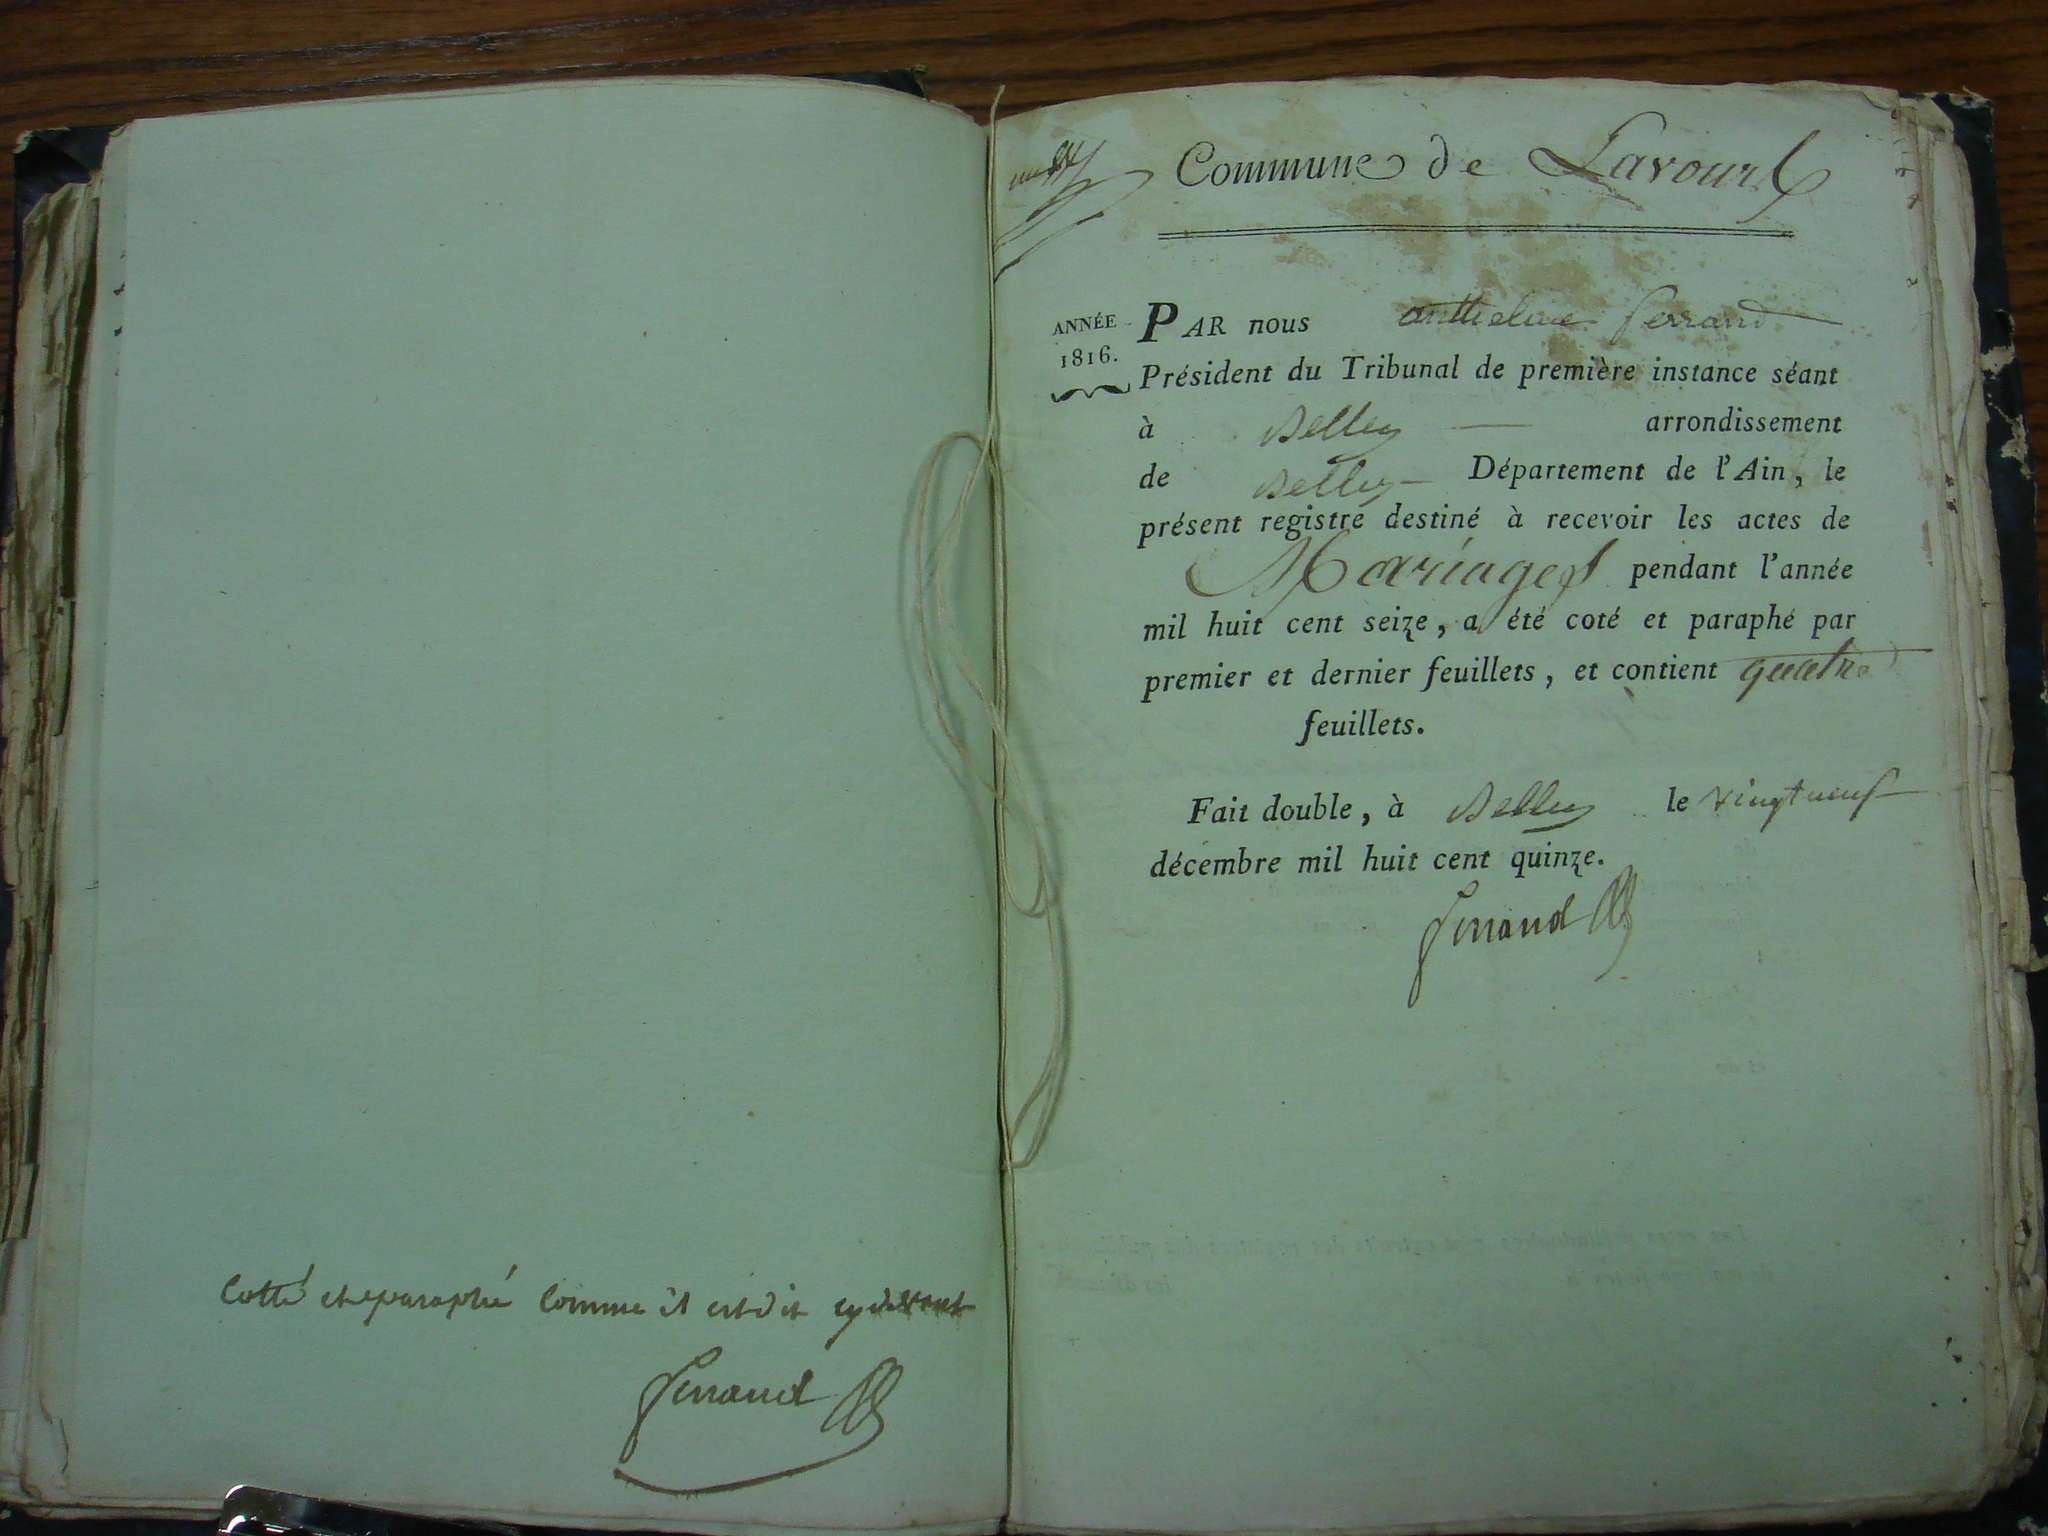 Cotté et paraphé Comme il est dit cy devant
Ferrand
Commune de Lavours
ANNÉE
1816.
PAR nous anthelme ferrand
Président du Tribunal de première instance séant
à Belley arrondissement
de Belley Département de l'Ain, le
présent registre destiné à recevoir les actes de
Mariages pendant l'année
mil huit cent seize, a été coté et paraphé par
premier et dernier feuillets, et contient quatre
feuillets.
Fait double, à Belley le vingt neuf
décembre mil huit cent quinze.
Ferrand